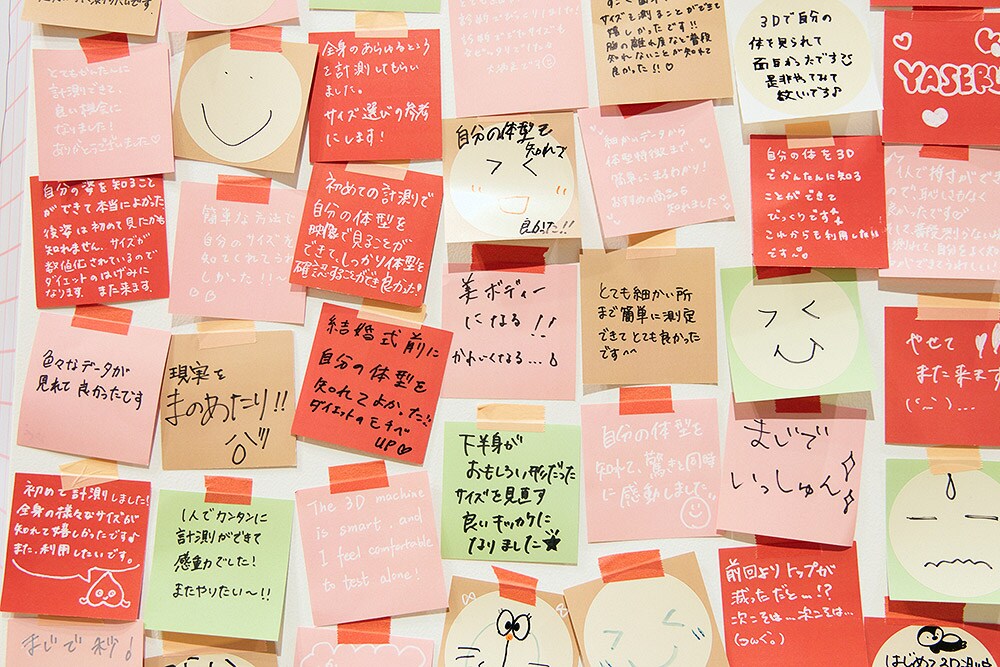 3Dで自分の
体を見られて
面白かったです
是非やってみて
欲しいです♪
YASERU
とてもかんたんに
計測できて、
良い機会に
なりました!
ありがとうございました♡
全身のあらゆるところ
を計測してもらい
ました。
サイズ選びの参考
にします!
サイズを測ることができて
嬉しかったです!!
胸の離れ度など普段
知れないことが知れて
良かった!!♡
自分の体型を
知れて
良かった!!
細かいデータから
体型特徴まで、
簡単にまるわかり!
おすすめ商品も
知れました♡
自分の体を3D
でかんたんに知る
ことができて
びっくりです
これからも利用したい
です
自分の姿を知ること
ができて本当によかった
後姿は初めて見たかも
知れません。サイズが
数値化されているので
ダイエットのはげみに
なります。また来ます。
簡単な方法で
自分のサイズを
知れて
初めての計測で
自分の体型を
映像で見ることが
できて、しっかり体型を
確認することができ良かった!
美ボディー
になる!!
かわいくなる...
とても細かい所
まで簡単に測定
できてとても良かった
です^^
色々なデータが
見れて良かったです
現実を
まのあたり!!
結婚式前に
自分の体型を
知れてよかった!!
ダイエットのモチベ
UP♡
やせて
また来ます
下半身が
おもしろい形だった
サイズを見直す
良いキッカケに
なりました★
自分の体型を
知れて、驚きと同時
に感動しました
まじで
いっしゅん!
初めて計測しました!
全身の様々なサイズが
知れて嬉しかったです♪
また、利用したいです。
1人でカンタンに
計測ができて
感動でした!
またやりたい〜!!
The 3D machine
is smart, and
I feel comfortable
to test alone!
前回よりトップが
減っただと...!?
次こそは...次こそは...
まじで秒!
はじめて3D